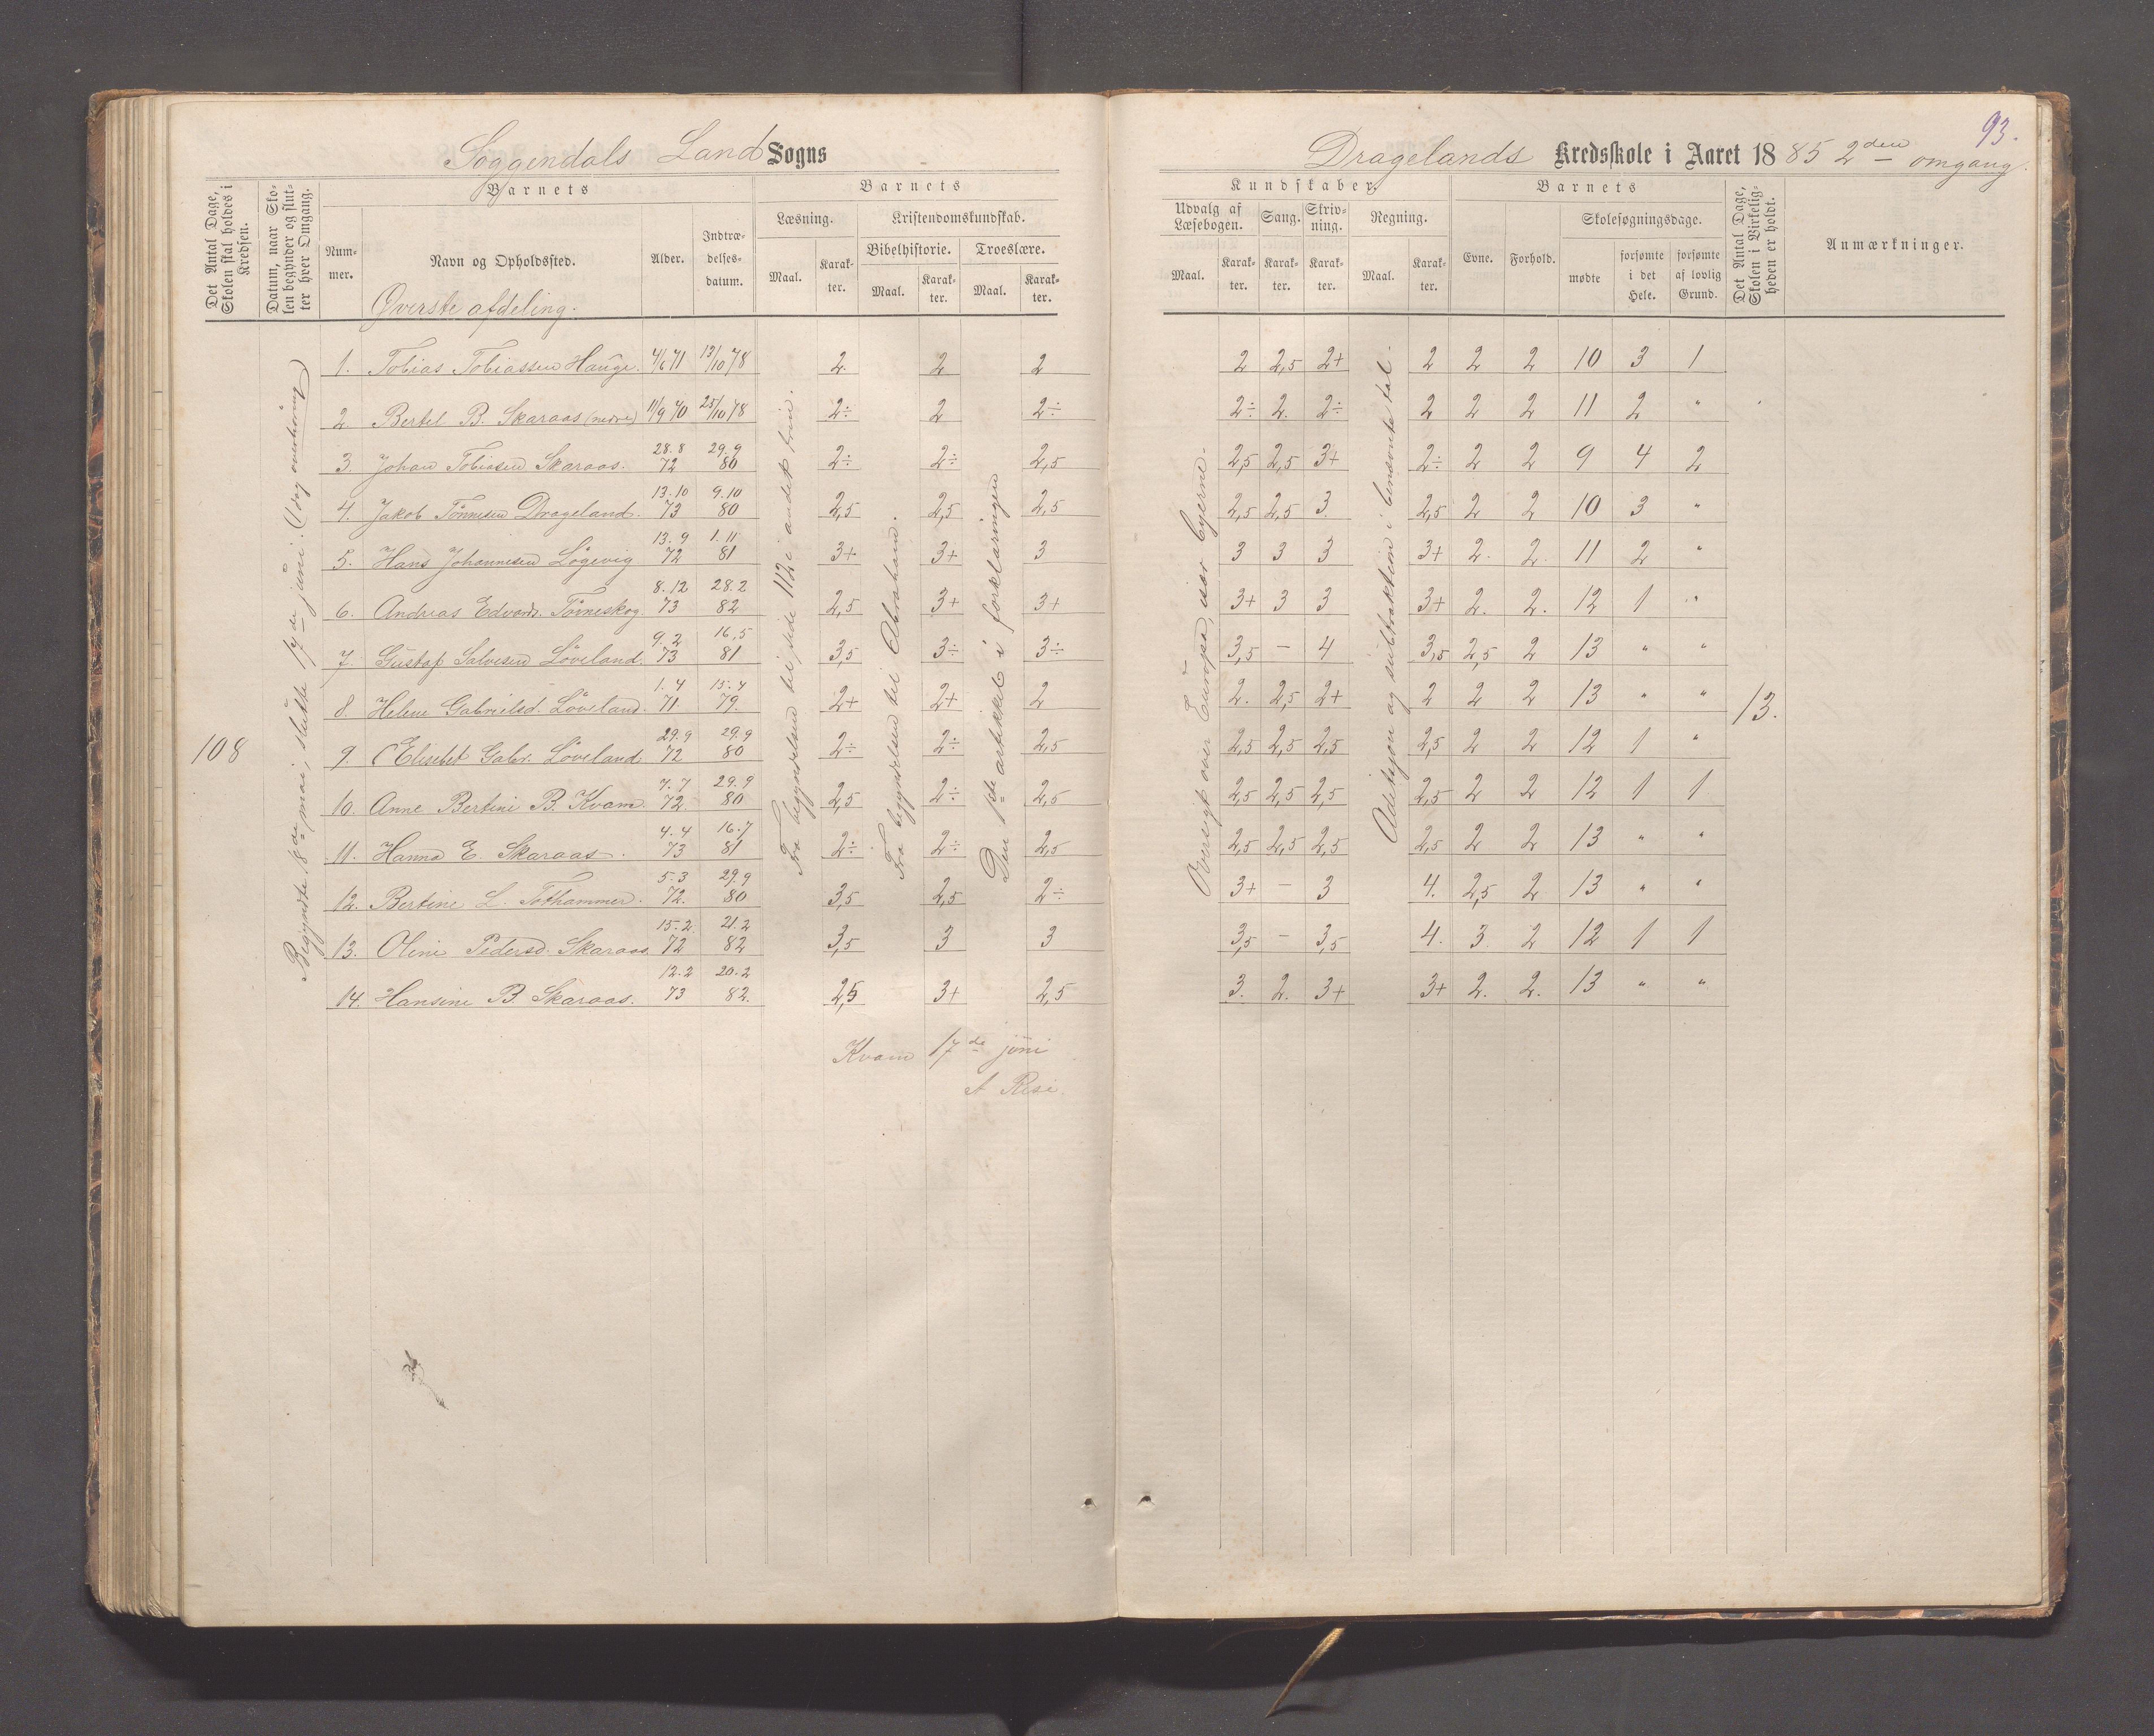 Soggendals Land Sogns
Dragelands Kredsskole i Aaret 1885 2den omgang.
93.
Det Antal Dage, Skolen skal holdes i Kredsen.
Datum, naar Skolen begynder og slutter hver Omgang.
Barnets
Nummer.
Navn og Opholdssted.
Alder.
Indtrædelsesdatum.
Barnets
Læsning.
Maal.
Karakter.
Kristendomskundskab.
Bibelhistorie.
Maal.
Karakter.
Troeslære.
Maal.
Karakter.
Kundskaber.
Udvalg af Læsebogen.
Maal.
Karakter.
Sang.
Karakter.
Skrivning.
Karakter.
Regning.
Maal.
Karakter.
Barnets
Evne.
Forhold.
Skolesøgningsdage.
mødte
forsømte i det Hele.
forsømte af lovlig Grund.
Det Antal Dage, Skolen i Virkeligheden er holdt.
Anmærkninger.
Øverste afdeling.
108
Begyndte 18de mai, sluttte 17de juni. (1 dag overhöring)
Fra begyndelsen til side 112 i andet trin.
Fra begyndelsen til Abraham.
Den 1ste artikkel i forklaringen
Oversigt over Europa, især byerne.
Aditsjon og subtraktion i benævnte tal.
13.
1. Tobias Tobiassen Hauge. 4/6 71 13/10 78 2. 2 2 2 2,5 2+ 2 2 2 10 3 1
2. Bertel B. Skaraas (nedre) 11/9 70 25/10 78 2÷ 2 2÷ 2÷ 2. 2÷ 2 2 2 11 2 "
3. Johan Tobiasen Skaraas. 28.8 72 29.9 80 2÷ 2÷ 2,5 2,5 2,5 3+ 2÷ 2 2 9 4 2
4. Jakob Tönnesen Drageland. 13.10 73 9.10 80 2,5 2,5 2,5 2,5 2,5 3. 2,5 2 2 10 3 "
5. Hans Johannesen Lögevig 13.9 72 1.11. 81 3+ 3+ 3 3 3 3 3+ 2. 2. 11 2 "
6. Andreas Edvards. Törneskog. 8.12 73 28.2 82 2,5 3+ 3+ 3+ 3 3 3+ 2. 2. 12 1 "
7. Gustaf Salvesen Löveland. 9.2 73 16.5 81 3,5 3÷ 3÷ 3,5 – 4 3,5 2,5 2 13 " "
8. Helene Gabrielsd. Löveland. 1.4 71. 15.4 79. 2+ 2+ 2 2. 2,5 2+ 2 2 2 13 " "
9. Elisebet Gabr. Löveland 29.9 72 29.9 80 2÷ 2÷ 2,5 2,5 2,5 2,5 2,5 2 2 12 1 "
10. Anne Bertini B. Kvam. 7.7 72. 29.9 80 2,5 2÷ 2,5 2,5 2,5 2,5 2,5 2 2 12 1 1
11. Hanna E. Skaraas. 4.4 73 16.7 81 2÷ 2÷ 2,5 2,5 2,5 2,5 2,5 2 2 13 " "
12. Bertine L. Tothammer. 5.3 72. 29.9 80 3,5 2,5 2÷ 3+ – 3 4. 2,5 2 13 " "
13. Oline Pedersd. Skaraas 15.2 72 21.2 82 3,5 3 3 3,5 – 3,5 4. 3. 2 12 1 1
14. Hansine B. Skaraas. 12.2 73 20.2 82. 2,5 3+ 2,5 3. 2. 3+ 3+ 2. 2. 13 " "
Kvam 17de juni
A Rese.